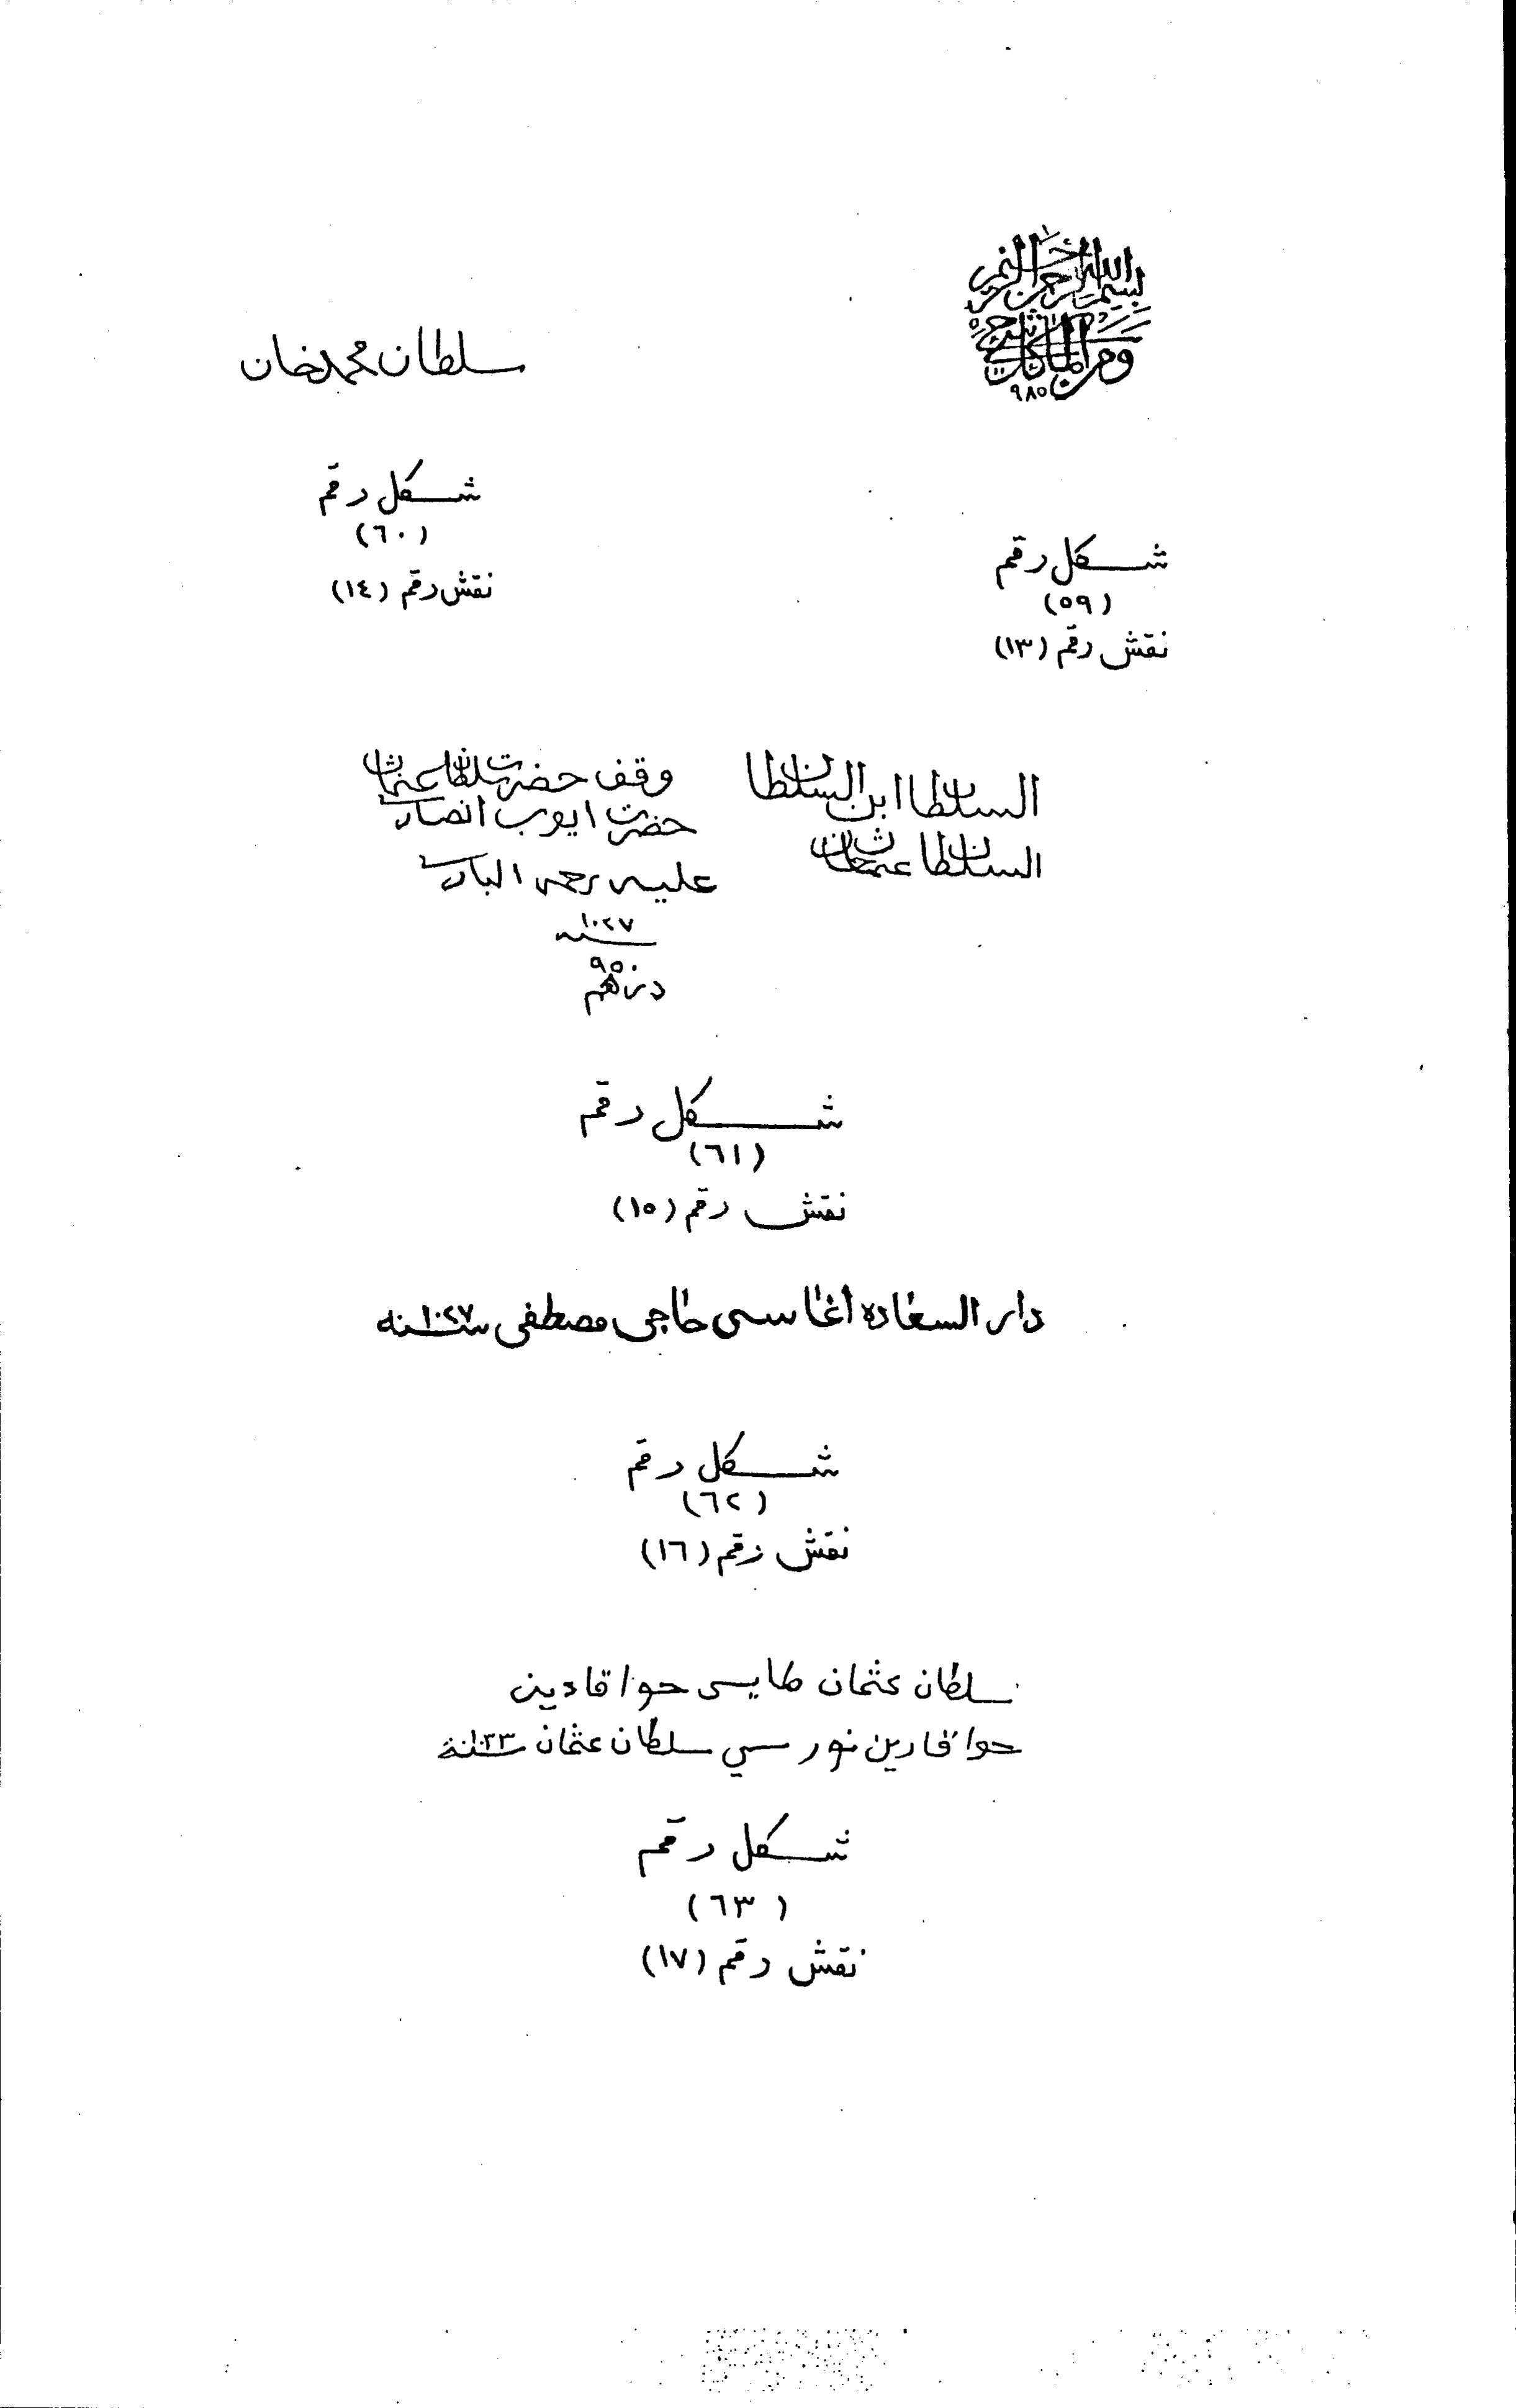 بسم الله الرحمن الرحيم
ومن الماء كل شيء حي
٩٨٥
شكل رقم
(٥٩)
نقش رقم (١٣)
سلطان محمد خان
شكل رقم
(٦٠)
نقش رقم (١٤)
السلطان ابن السلطان
السلطان عثمان خان
وقف حضرت سلطان عثمان
حضرت ايوب انصاري
عليه رحمه الباري
سنه ١٠٢٧
٩٥٠
درهم
شكل رقم
(٦١)
نقش رقم (١٥)
دار السعاده أغا سى حاجى مصطفى سنه ١٠٢٧
شكل رقم
(٦٢)
نقش رقم (١٦)
سلطان عثمان طايسى حوا قادين
حوا قادين نور سي سلطان عثمان سنة ١٠٣٣
شكل رقم
(٦٣)
نقش رقم (١٧)